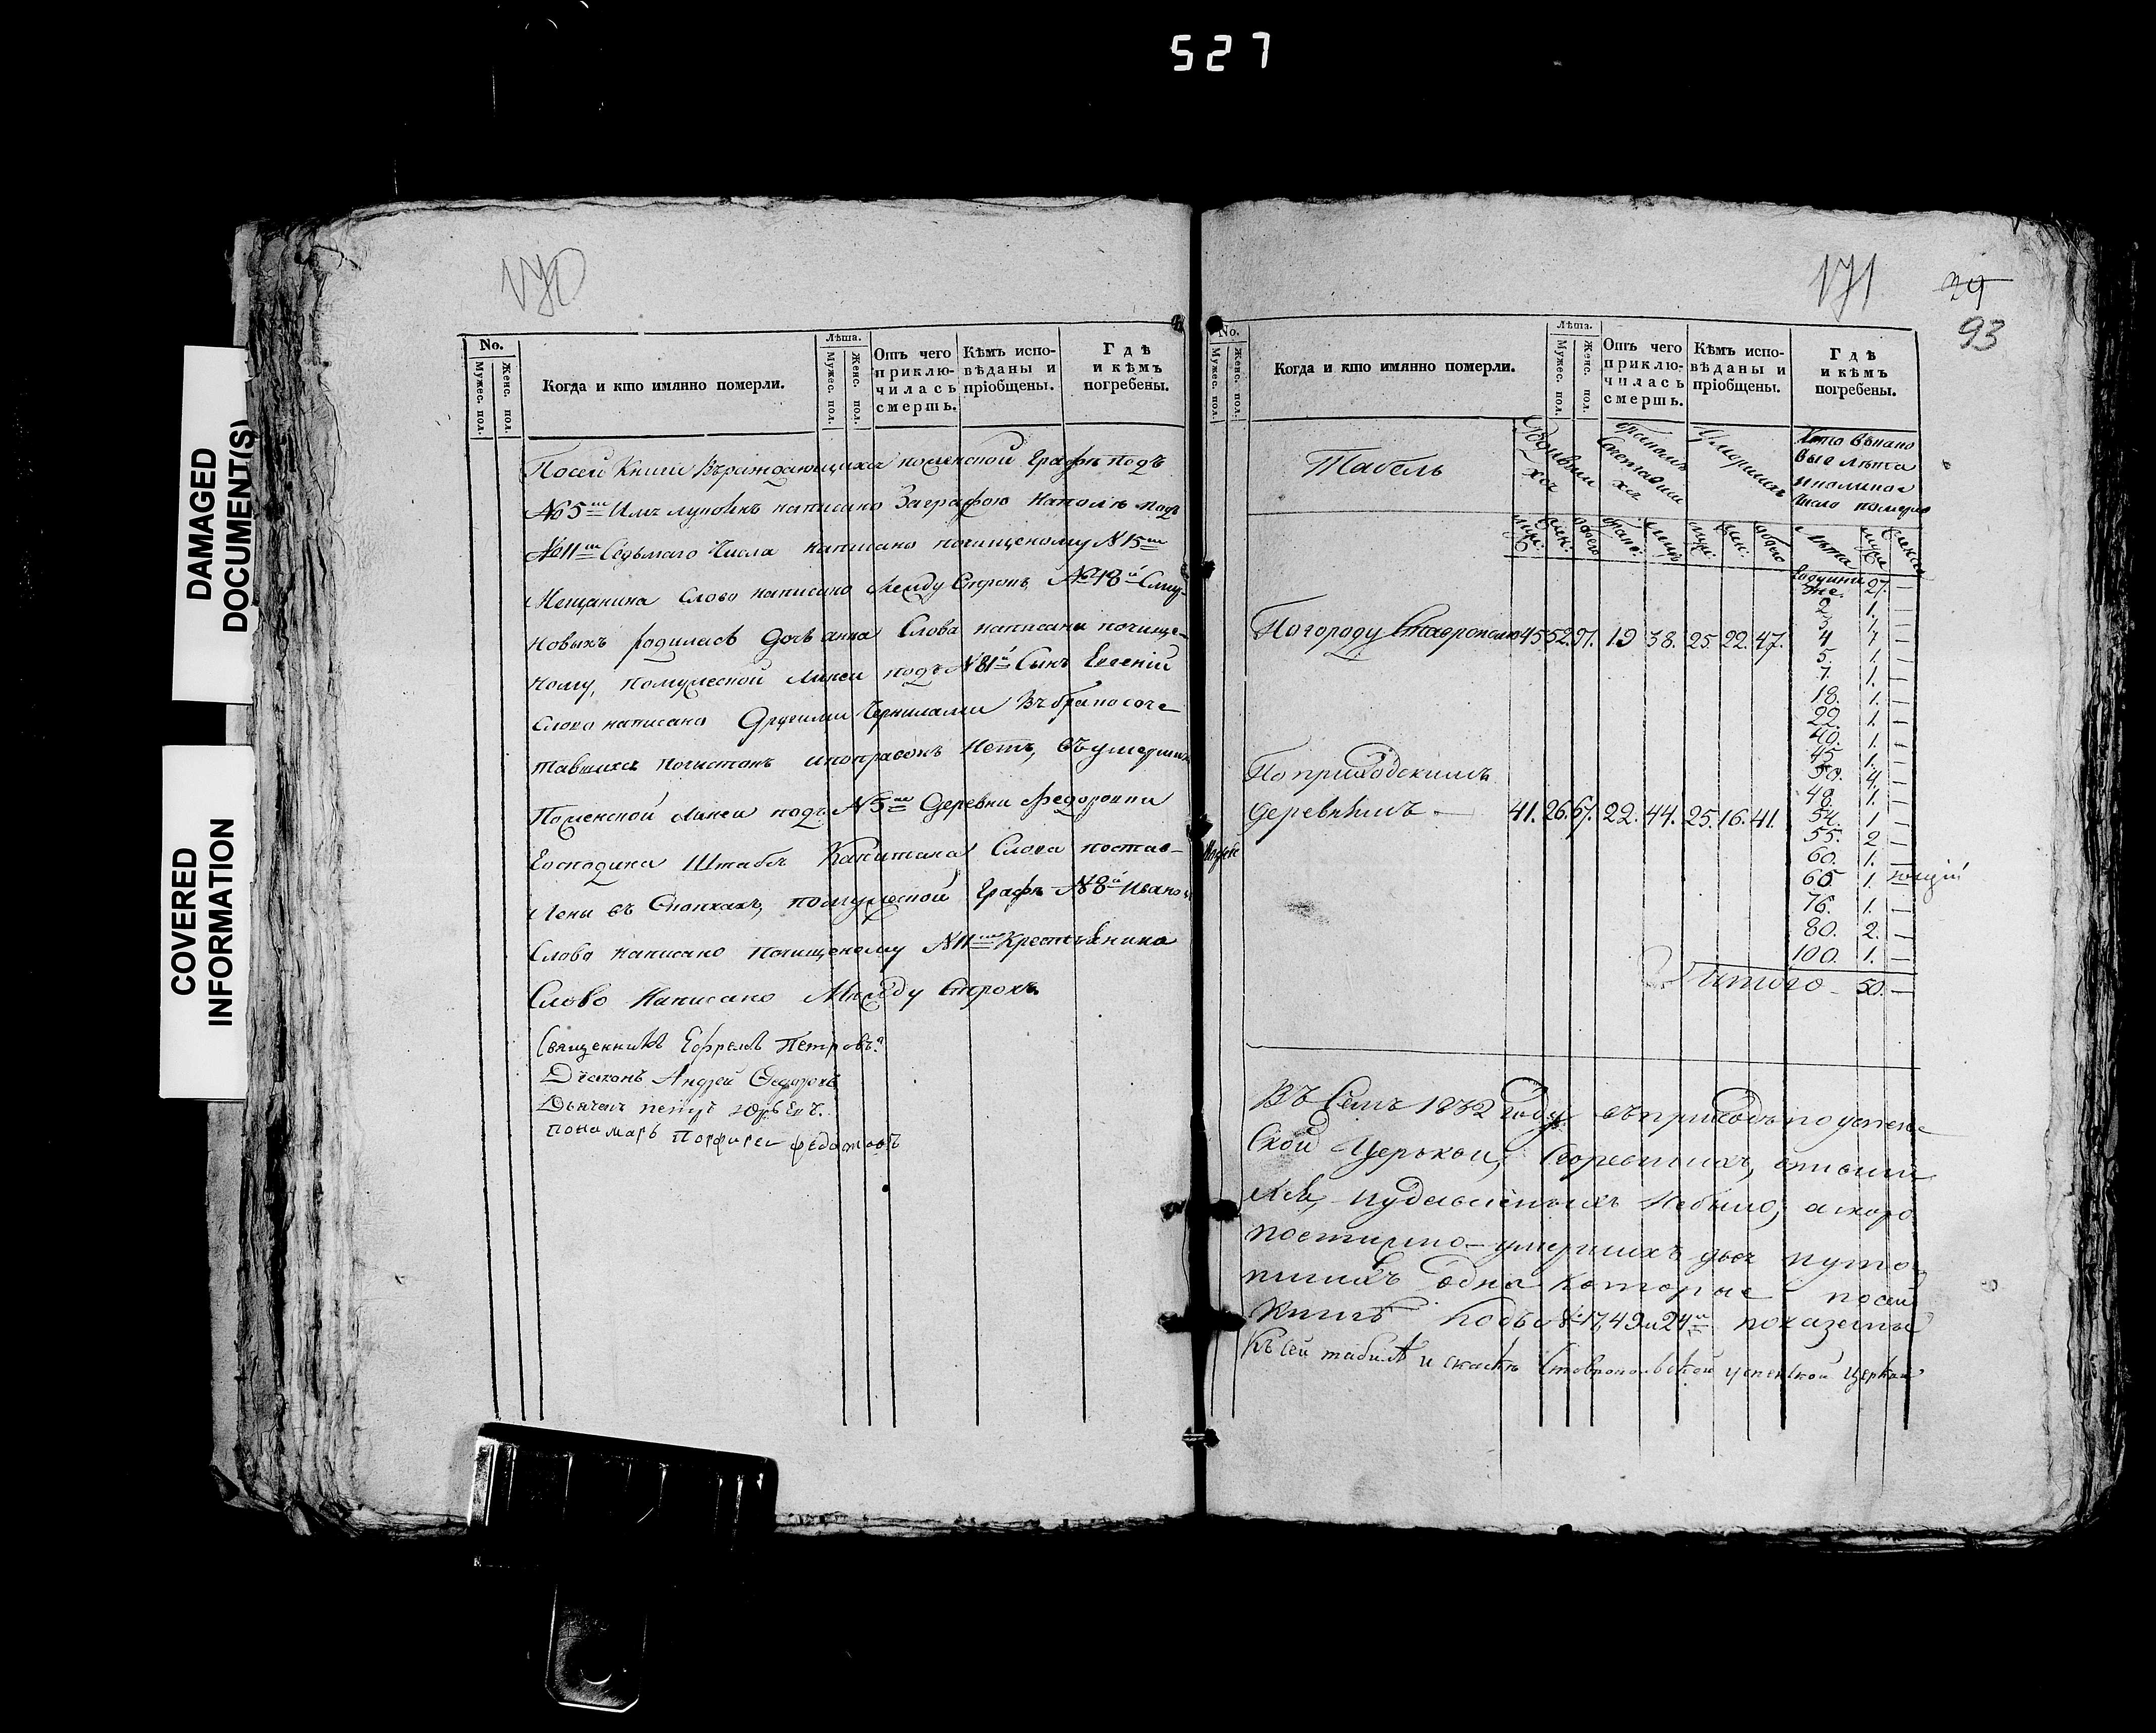 527
DAMAGED
DOCUMENT(S)
COVERED
INFORMATION
170
No.
Мужес. пол.
Женс. пол.
Когда и кто имянно померли.
Лѣта.
Мужес. пол.
Женс. пол.
Отъ чего
приклю-
чилась
смерть.
Кѣмъ испо-
вѣданы и
пріобщены.
Гдѣ
и кѣмъ
погребены.
Посей Книги Въраждающихся поженской Графѣ подъ
№ 5 написано Заграфою наполѣ подъ
№ 11 Седьмаго Числа написано почищеному № 15
Мещанина Слово написано Между Строкъ, № 18
новыхъ родилась Дочь анна Слова написаны почище-
ному, помужеской линеи подъ № 81 Сынъ Евгеній
Слово написано Другими Чернилами Въбракосоче-
тавшихся почистокъ ипоправокъ Нетъ, Въумершихъ
Поженской линеи подъ № 5 Деревни Федоровки
Господина Штабсъ Капитана Слова постав-
лены въ Скопкахъ, помужеской Графѣ № 8 Иванов
Слово написано почищеному № 11 Крестьянина
Слово Написано Между Строкъ.
Священникъ Ефремъ Петровъ
Діаконъ Андрей Федоровъ
Дьячекъ петръ
пономарь Порфирей федотовъ
171
29
93
No.
Мужес. пол.
Женс. пол.
Когда и кто имянно померли.
Лѣта.
Мужес. пол.
Женс. пол.
Отъ чего
приклю-
чилась
смерть.
Кѣмъ испо-
вѣданы и
пріобщены.
Гдѣ
и кѣмъ
погребены.
Табель
Родивши
хся
бракомъ
Сочетавши
хся
Умершихъ
лѣта
число померло
муж: жен: обоего брако: лицъ муж: жен: обоего лѣта
Погороду Ставрополю 45 52 97. 19 38. 25. 22. 47.
Поприходскимъ
деревнямъ — 41. 26 67. 22. 44. 25. 16. 41.
27. —
2 1. —
3 1. —
4 —
5. 1. —
7. 1. —
18. 1. —
22. 1. —
40. 1. —
45 1. —
50. 4. —
48. 1. —
54. 1 —
55. 2 —
60. 1. —
65. 1. —
76. 1. —
80. 2. —
100. 1. —
Итого 50. —
Въ Семъ 1832 году въприходѣ поуспен-
ской Церькви, Сгоревшихъ,
удавленыхъ Небыло, аскоро
постижно-умершихъ двое иуто-
пшихъ одна которые посей
Книгѣ подъ № 17, 49 и 24 показаны
Къ сей табелѣ и Ставропольской успенской церкви